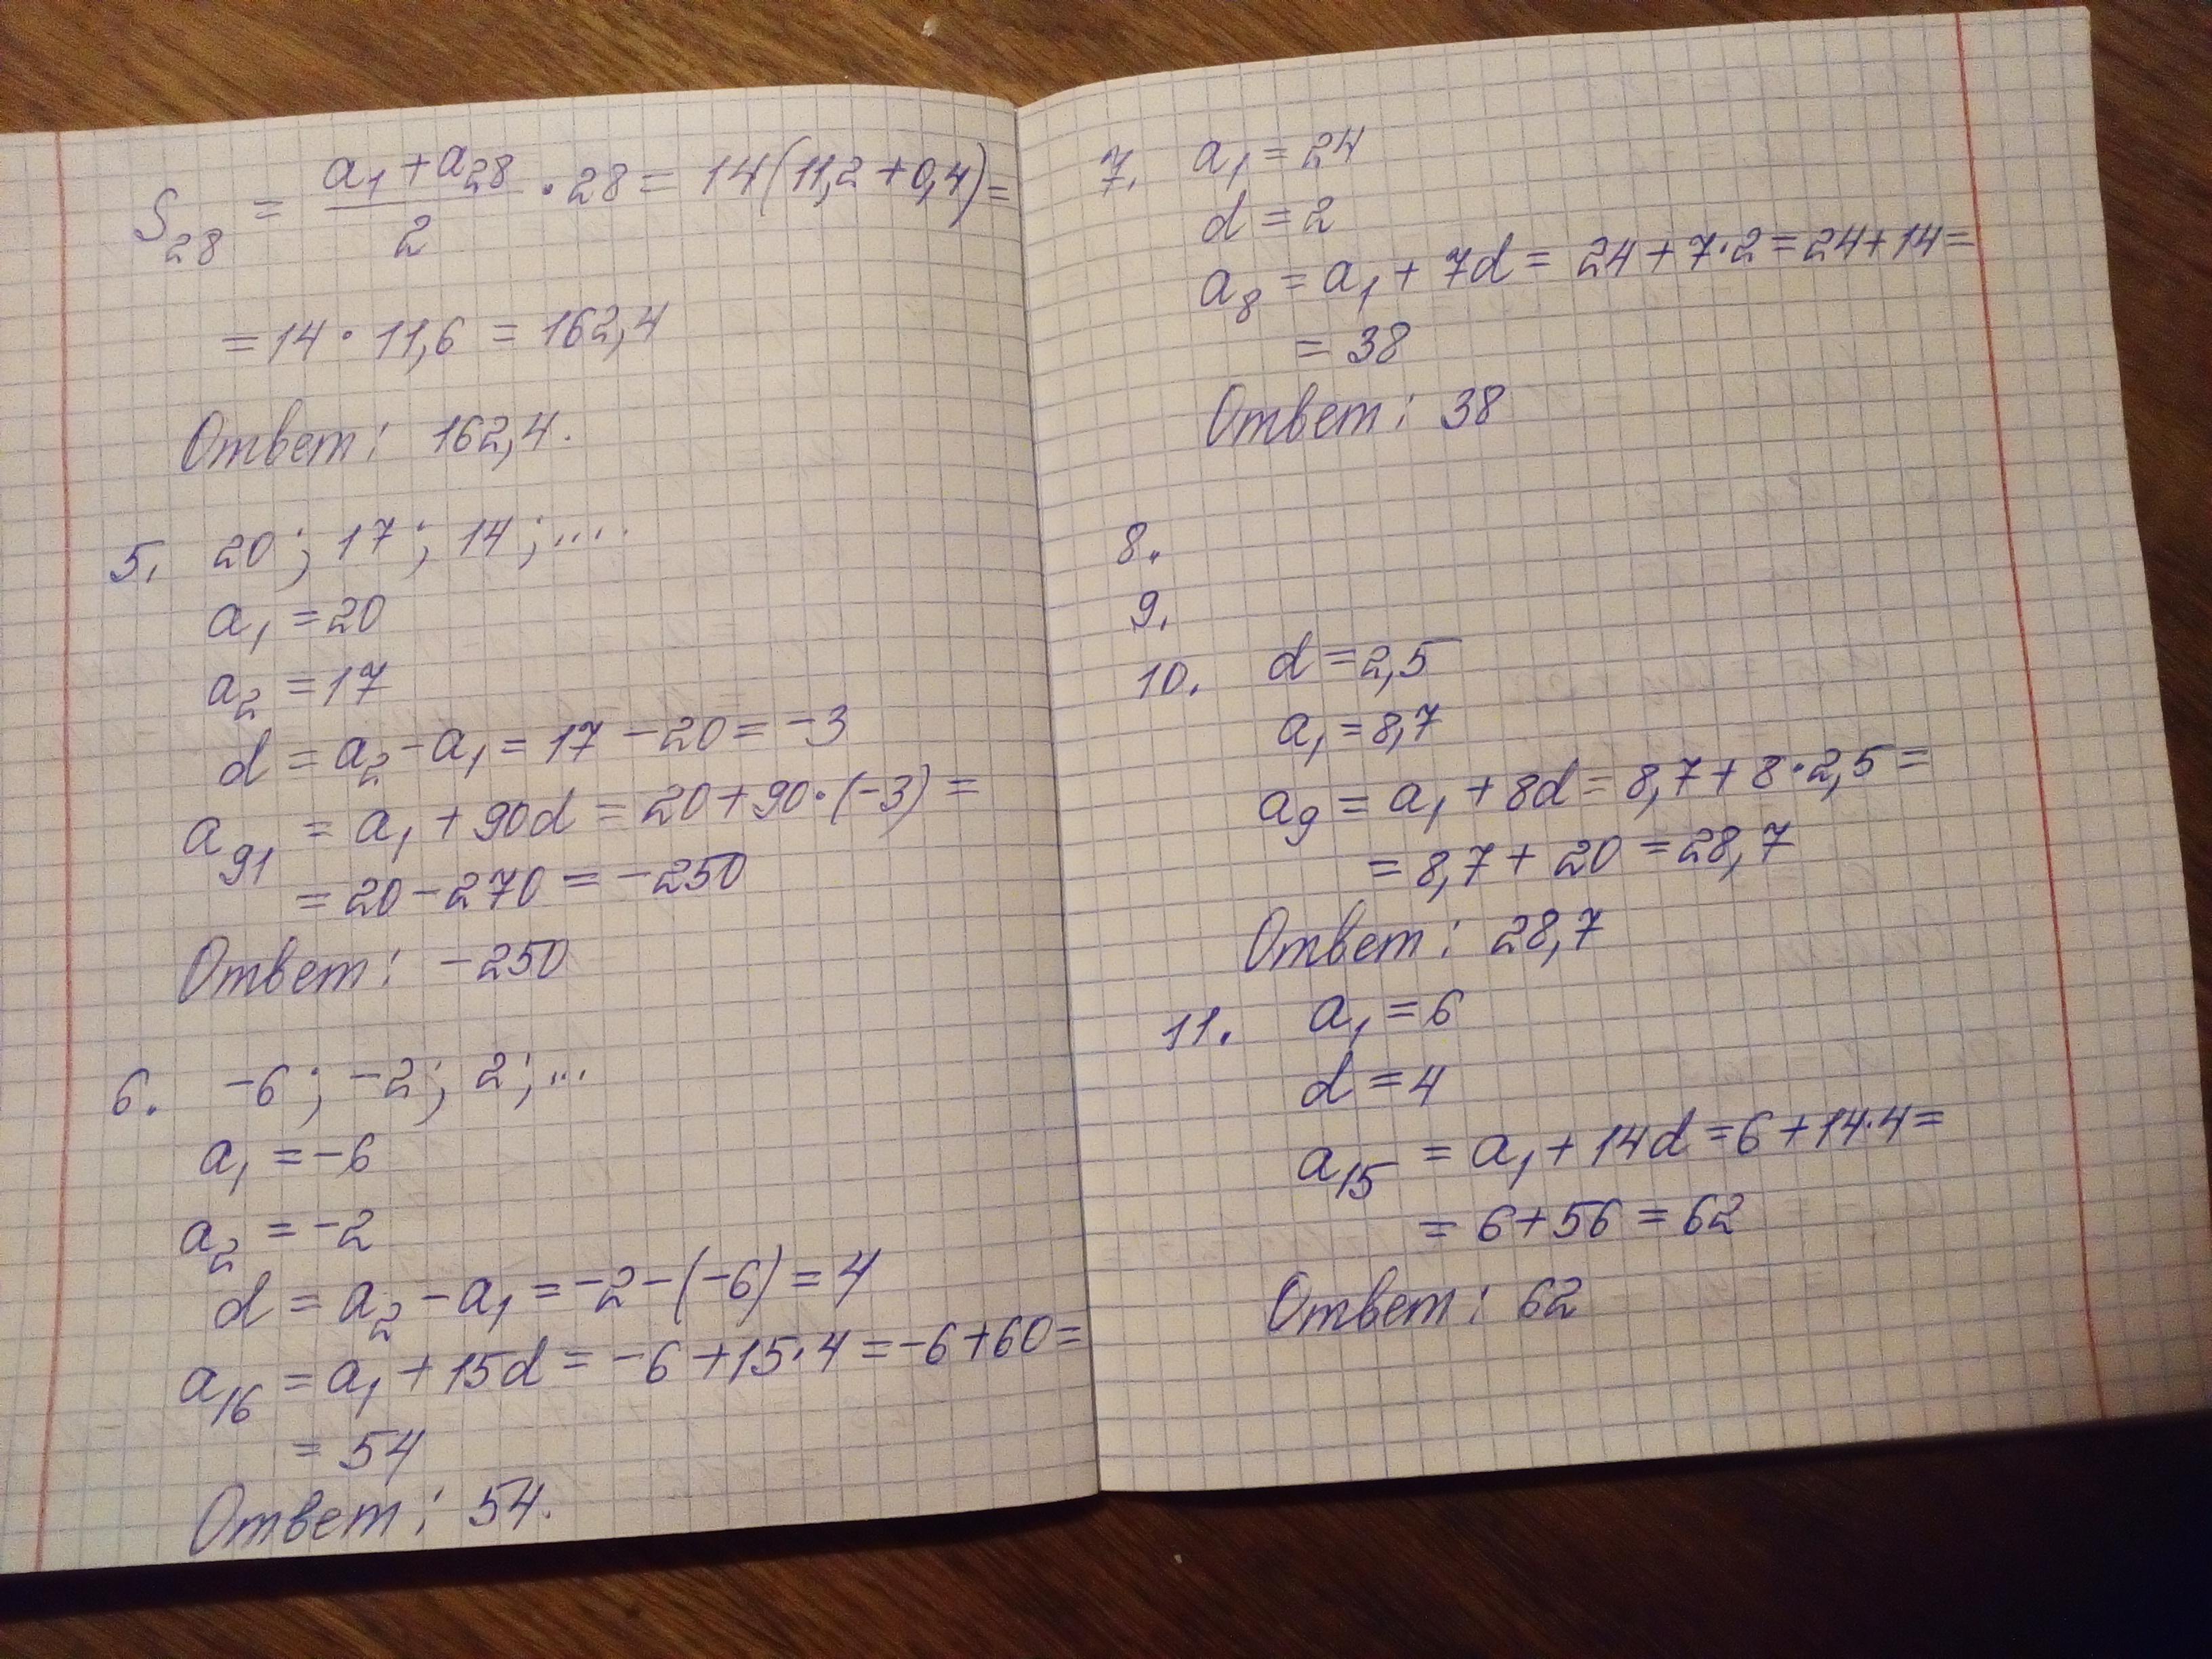 S₂₈ = (a₁ + a₂₈)/2 · 28 = 14(11,2 + 0,4) =
= 14 · 11,6 = 162,4
Ответ: 162,4.
5. 20; 17; 14; ....
a₁ = 20
a₂ = 17
d = a₂ - a₁ = 17 - 20 = -3
a₉₁ = a₁ + 90d = 20 + 90 · (-3) =
= 20 - 270 = -250
Ответ: -250
6. -6; -2; 2; ...
a₁ = -6
a₂ = -2
d = a₂ - a₁ = -2 - (-6) = 4
a₁₆ = a₁ + 15d = -6 + 15 · 4 = -6 + 60 =
= 54
Ответ: 54.
7. a₁ = 24
d = 2
a₈ = a₁ + 7d = 24 + 7 · 2 = 24 + 14 =
= 38
Ответ: 38
8.
9.
10. d = 2,5
a₁ = 8,7
a₉ = a₁ + 8d = 8,7 + 8 · 2,5 =
= 8,7 + 20 = 28,7
Ответ: 28,7
11. a₁ = 6
d = 4
a₁₅ = a₁ + 14d = 6 + 14 · 4 =
= 6 + 56 = 62
Ответ: 62